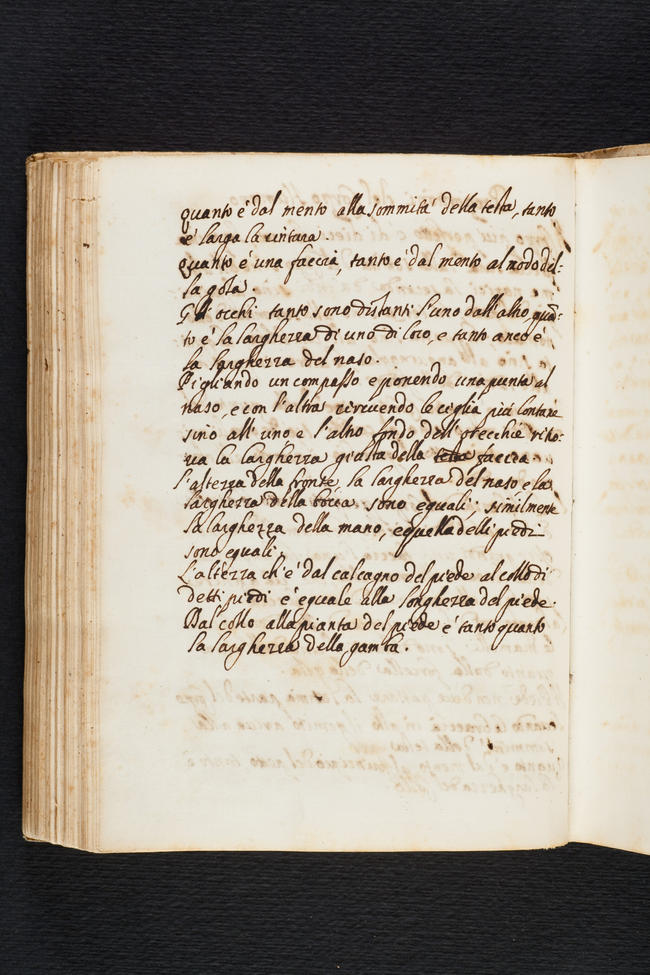 quanto é dal mento alla sommitá della testa, tanto
é larga la cintura.
quanto é una faccia, tanto é dal mento al nodo del-
la gola.
Gl'occhi tanto sono distanti l'uno dall'altro, quã-
to é la larghezza di uno di loro, e tanto anco é
la larghezza del naso.
Pigliando un compasso e ponendo una punta al
naso, e con l'altra le ciglia piú lontane
sino all'uno e l'altro fondo dell'orecchie ritro-
va la larghezza giusta della testa faccia
l'altezza della fronte, la larghezza del naso e la
larghezza della bocca sono equali; similmente
la larghezza della mano, e quella delli piedi
sono equali.
L'altezza ch'é dal calcagno del piede al collo di
detti piedi é equale alla longhezza del piede.
Dal collo alla pianta del piede é tanto quanto
la larghezza della gamba.